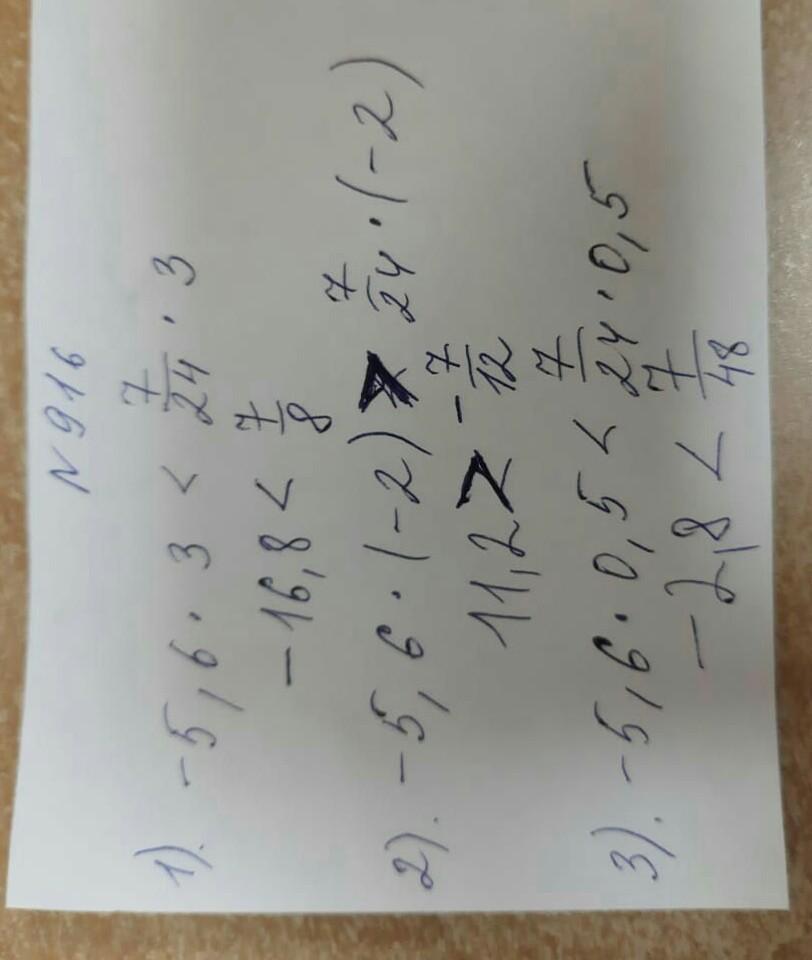 N 916
1). -5,6 · 3 < 7/24 · 3
-16,8 < 7/8
2). -5,6 · (-2) > 7/24 · (-2)
11,2 > -7/12
3). -5,6 · 0,5 < 7/24 · 0,5
-2,8 < 7/48